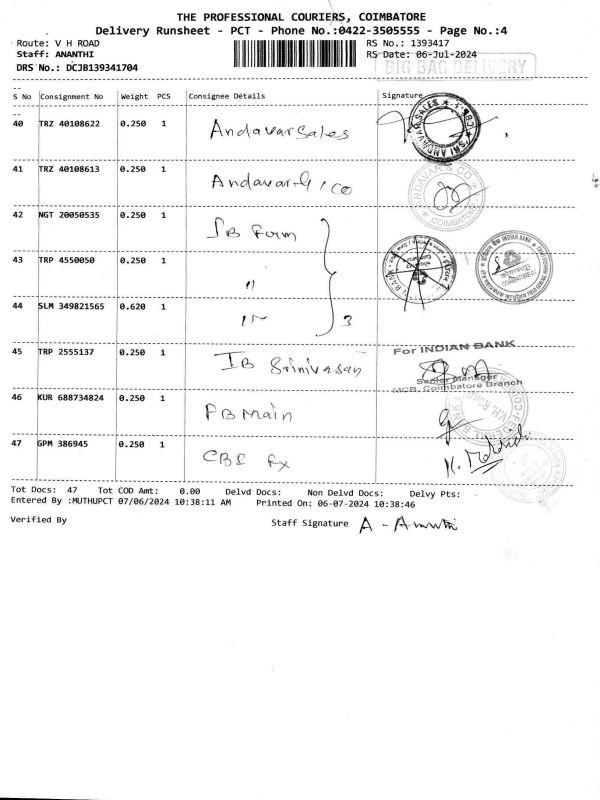 THE PROFESSIONAL COURIERS, COIMBATORE
Delivery Runsheet - PCT - Phone No.:0422-3505555 - Page No.:4
Route: V H ROAD RS No.: 1393417
Staff: ANANTHI RS Date: 06-Jul-2024
DRS No.: DCJB139341704 BIG BAG DELIVERY
S No Consignment No Weight PCS Consignee Details Signature
40 TRZ 40108622 0.250 1 Andavar Sales
41 TRZ 40108613 0.250 1 Andavar & Co
ANDAVAR & CO
COIMBATORE
42 NGT 20050535 0.250 1
43 TRP 4550050 0.250 1 "
INDIAN BANK
44 SLM 349821565 0.620 1 3
45 TRP 2555137 0.250 1 IB Srinivasan
For INDIAN BANK
Senior Manager
MCB, Coimbatore Branch
46 KUR 688734824 0.250 1 FB Main
47 GPM 386945 0.250 1 CBE
Tot Docs: 47 Tot COD Amt: 0.00 Delvd Docs: Non Delvd Docs: Delvy Pts:
Entered By :MUTHUPCT 07/06/2024 10:38:11 AM Printed On: 06-07-2024 10:38:46
Verified By Staff Signature